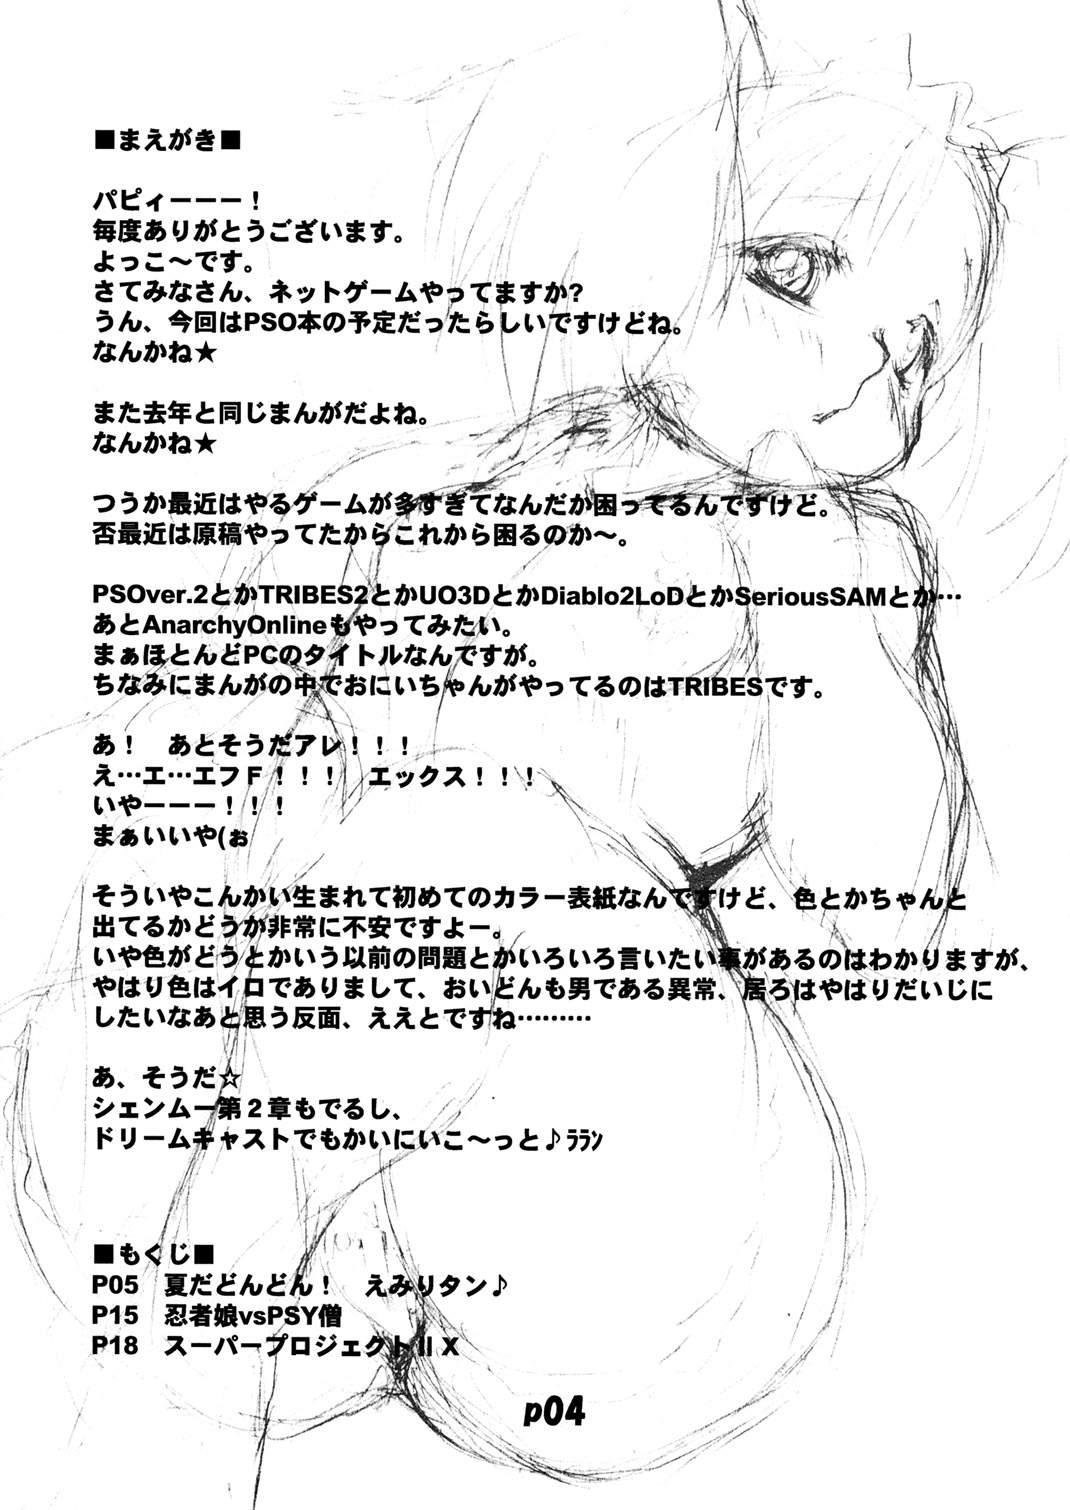 ■まえがき■
パピィーーー！
毎度ありがとうございます。
よっこ～です。
さてみなさん、ネットゲームやってますか?
うん、今回はPSO本の予定だったらしいですけどね。
なんかね★
また去年と同じまんがだよね。
なんかね★
つうか最近はやるゲームが多すぎてなんだか困ってるんですけど。
否最近は原稿やってたからこれから困るのか～。
PSOver.2とかTRIBES2とかUO3DとかDiablo2LoDとかSeriousSAMとか…
あとAnarchyOnlineもやってみたい。
まぁほとんどPCのタイトルなんですが。
ちなみにまんがの中でおにいちゃんがやってるのはTRIBESです。
あ！　あとそうだアレ！！！
え…エ…エフＦ！！！　エックス！！！
いやーーー！！！
まぁいいや(ぉ
そういやこんかい生まれて初めてのカラー表紙なんですけど、色とかちゃんと
出てるかどうか非常に不安ですよー。
いや色がどうとかいう以前の問題とかいろいろ言いたい事があるのはわかりますが、
やはり色はイロでありまして、おいどんも男である異常、居ろはやはりだいじに
したいなあと思う反面、ええとですね………
あ、そうだ☆
シェンムー第２章もでるし、
ドリームキャストでもかいにいこ～っと♪ﾗﾗﾝ
■もくじ■
P05　夏だどんどん！　えみりタン♪
P15　忍者娘vsPSY僧
P18　スーパープロジェクトⅡＸ
p04